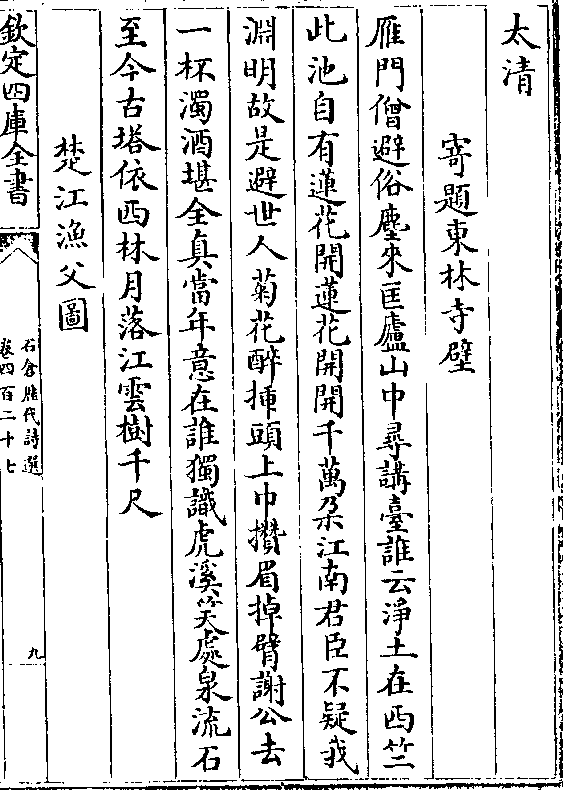 太清
寄題東林寺壁
雁門僧避俗塵來匡廬山中尋講臺誰云淨土在西竺
此池自有蓮花開蓮花開開千萬朶江南君臣不疑我
淵明故是避世人菊花醉揷頭上巾攢眉掉臂謝公去
一杯濁酒堪全真當年意在誰獨識虎溪笑處泉流石
至今古塔依西林月落江雲樹千尺
楚江漁父圖
欽定四庫全書
石倉歷代詩選
卷四百二十七
九